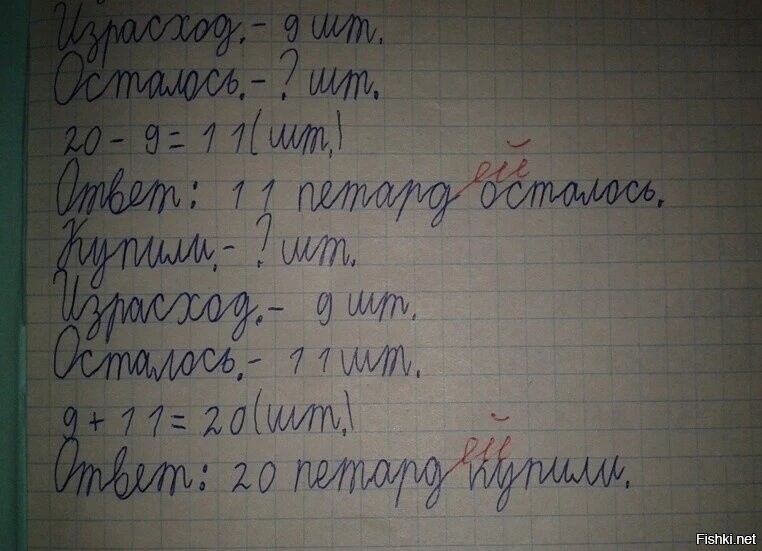 Израсход.- 9 шт.
Осталось.- ? шт.
20 - 9 = 11(шт.)
Ответ: 11 петард ей осталось.
Купили.- ? шт.
Израсход.- 9 шт.
Осталось.- 11 шт.
9 + 11 = 20(шт.)
Ответ: 20 петард ей купили.
Fishki.net